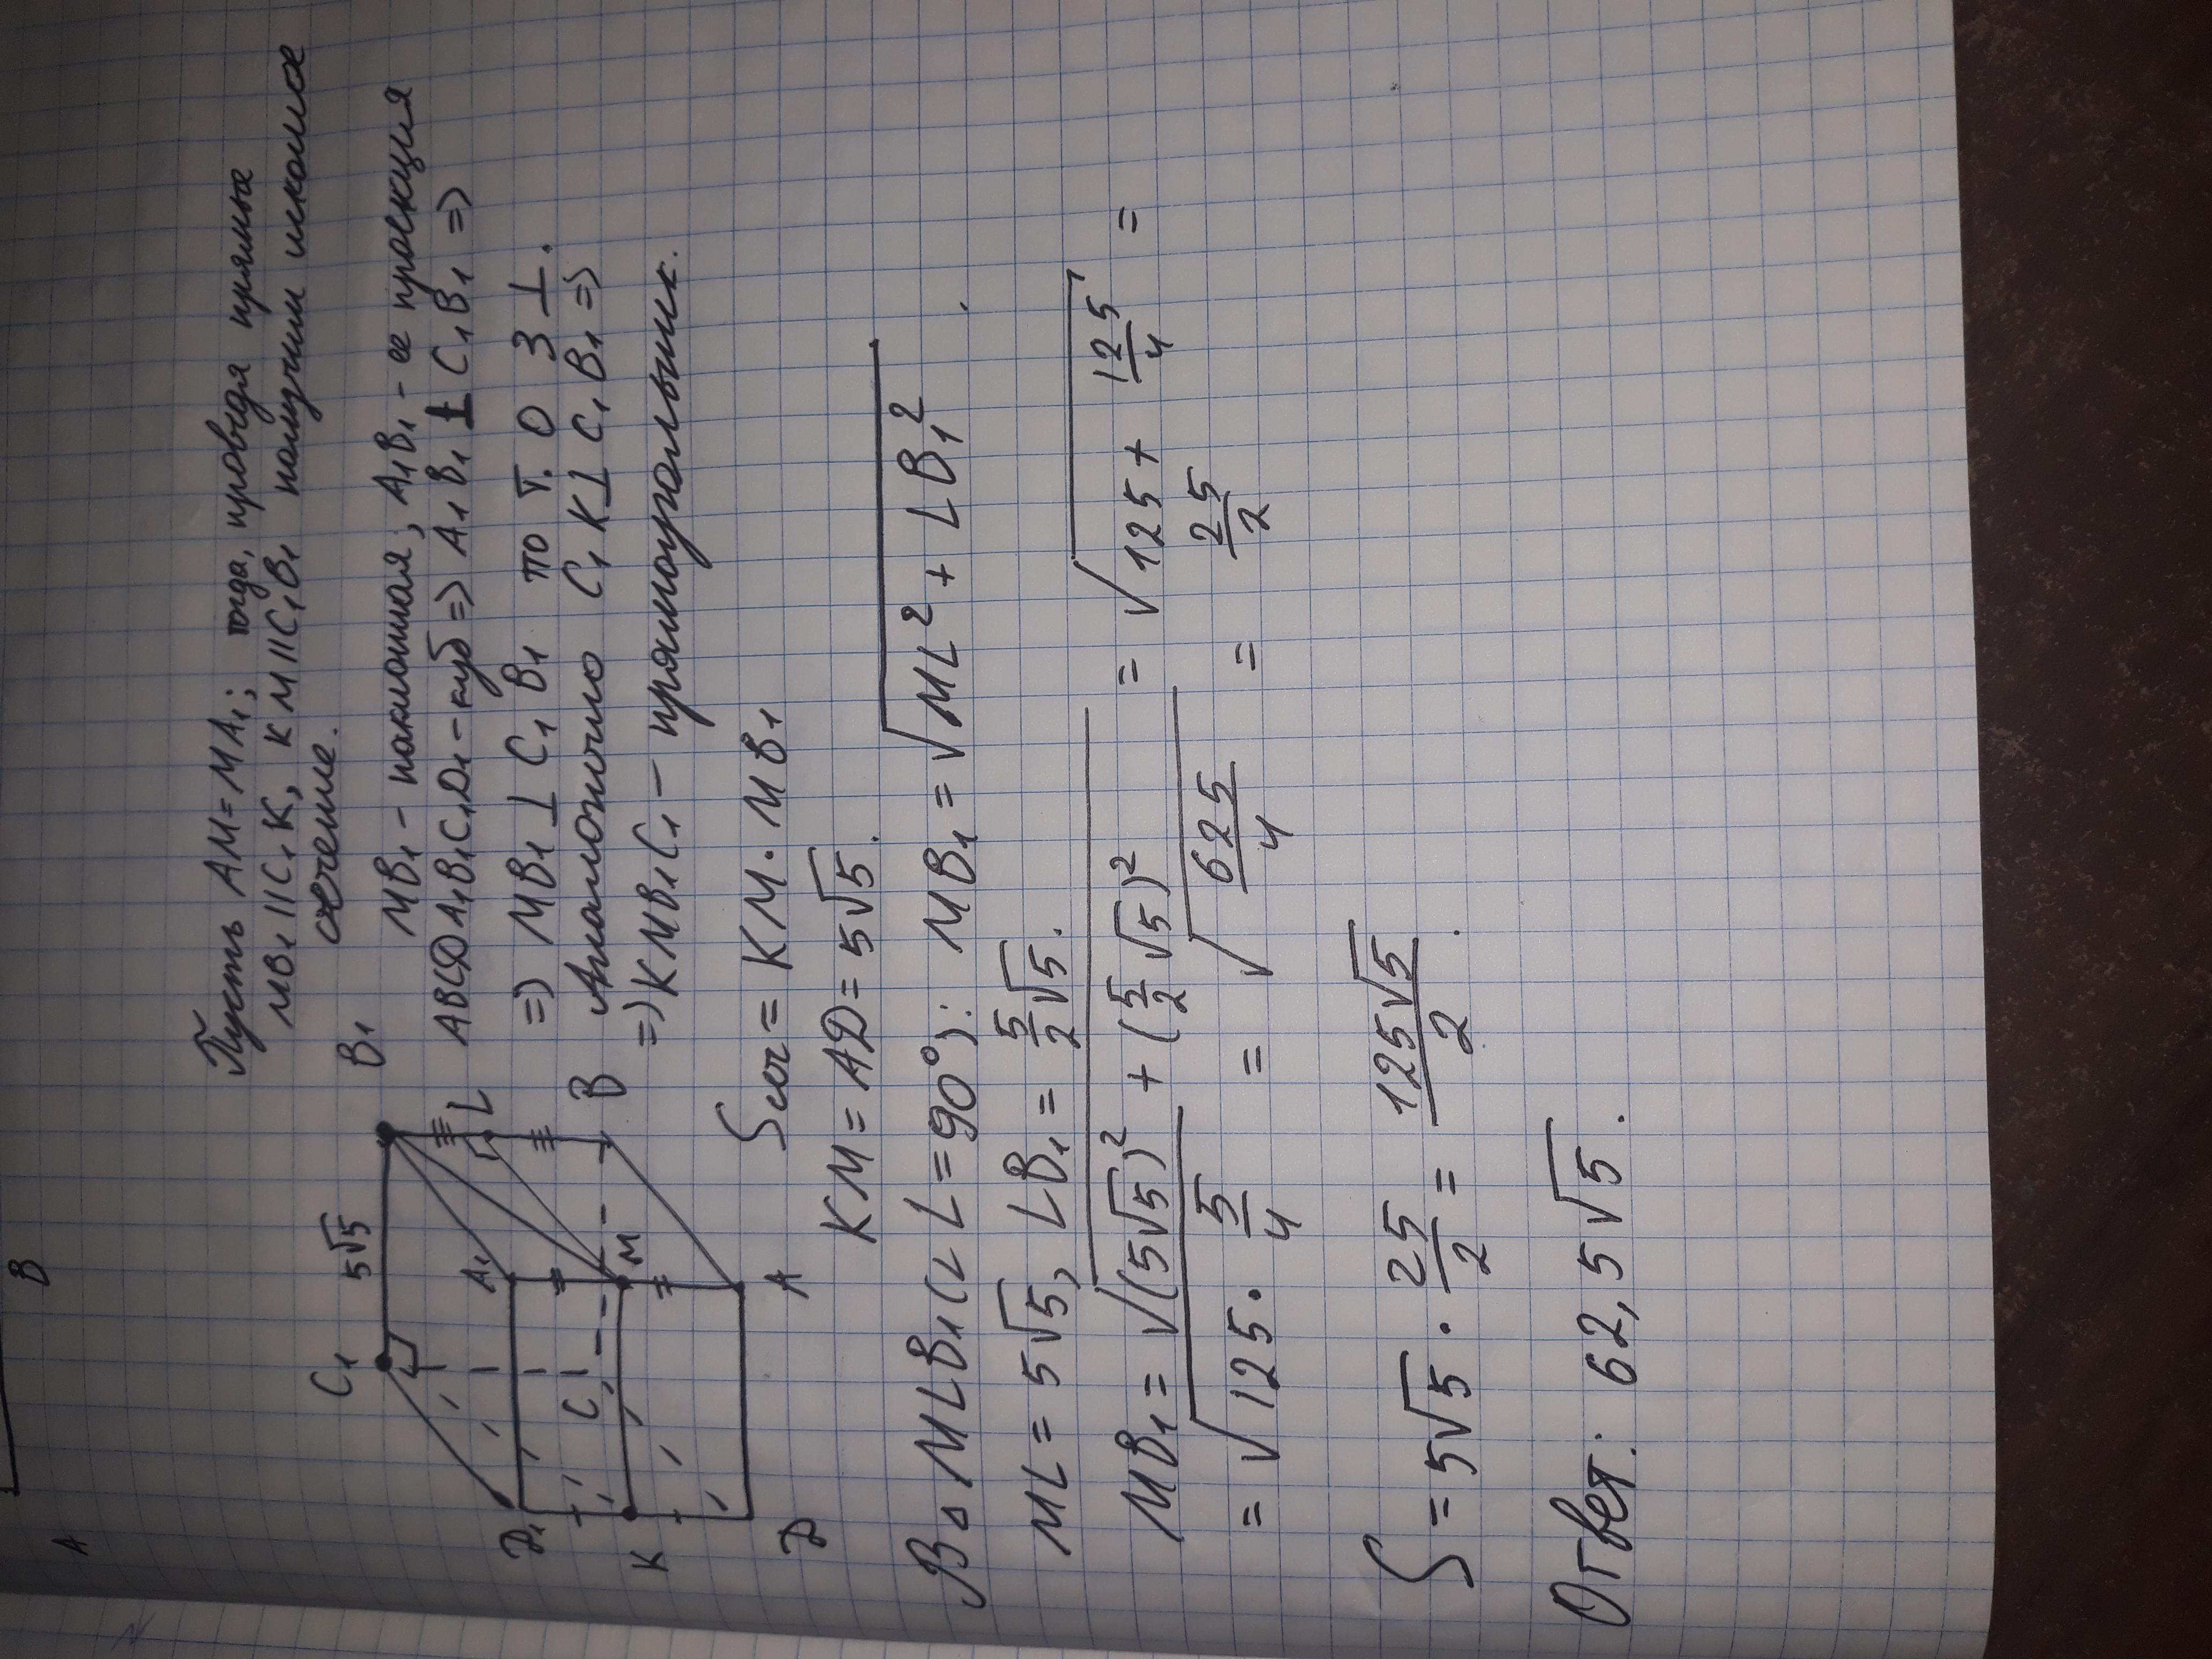 A
B
Пусть AM = MA₁; тогда, проводя прямые
MB₁ || C₁K, KM || C₁B₁ получим искомое
сечение.
MB₁ - наклонная, A₁B₁ - ее проекция
ABCDA₁B₁C₁D₁ - куб => A₁B₁ ⊥ C₁B₁ =>
=> MB₁ ⊥ C₁B₁ по Т. О 3 ⊥.
Аналогично C₁K ⊥ C₁B₁ =>
=> KMB₁C₁ - прямоугольник.
C₁ 5√5 B₁
D₁ A₁ L
K C M B
D A
Sсеч = KM · MB₁
KM = AD = 5√5.
В △ MLB₁ (∠ L = 90°): MB₁ = √(ML² + LB₁²).
ML = 5√5, LB₁ = 5/2 √5.
MB₁ = √((5√5)² + (5/2 √5)²) = √(125 + 125/4) =
= √(125 · 5/4) = √(625/4) = 25/2
S = 5√5 · 25/2 = 125√5/2.
Ответ: 62,5√5.